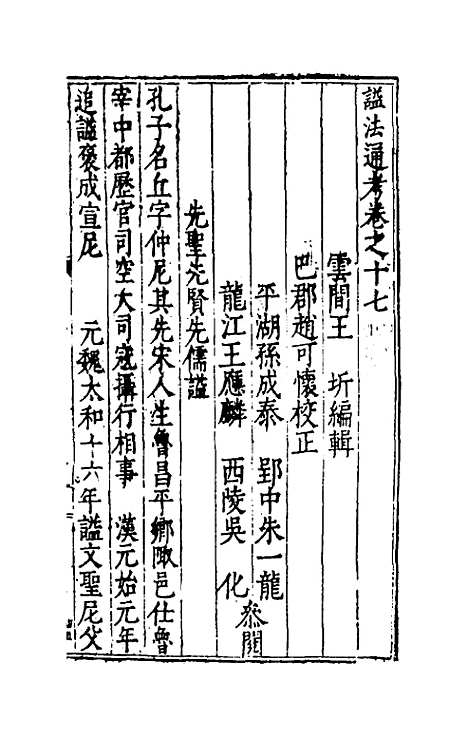 諡法通考卷之十七
雲間王　圻編輯
巴郡趙可懷校正
平湖孫成泰　郢中朱一龍
龍江王應麟　西陵吳　化
叅閱
先聖先賢先儒諡
孔子名丘字仲尼其先宋人生魯昌平鄉陬邑仕魯
宰中都歷官司空大司寇攝行相事　漢元始元年
追諡褒成宣尼　元魏太和十六年諡文聖尼父